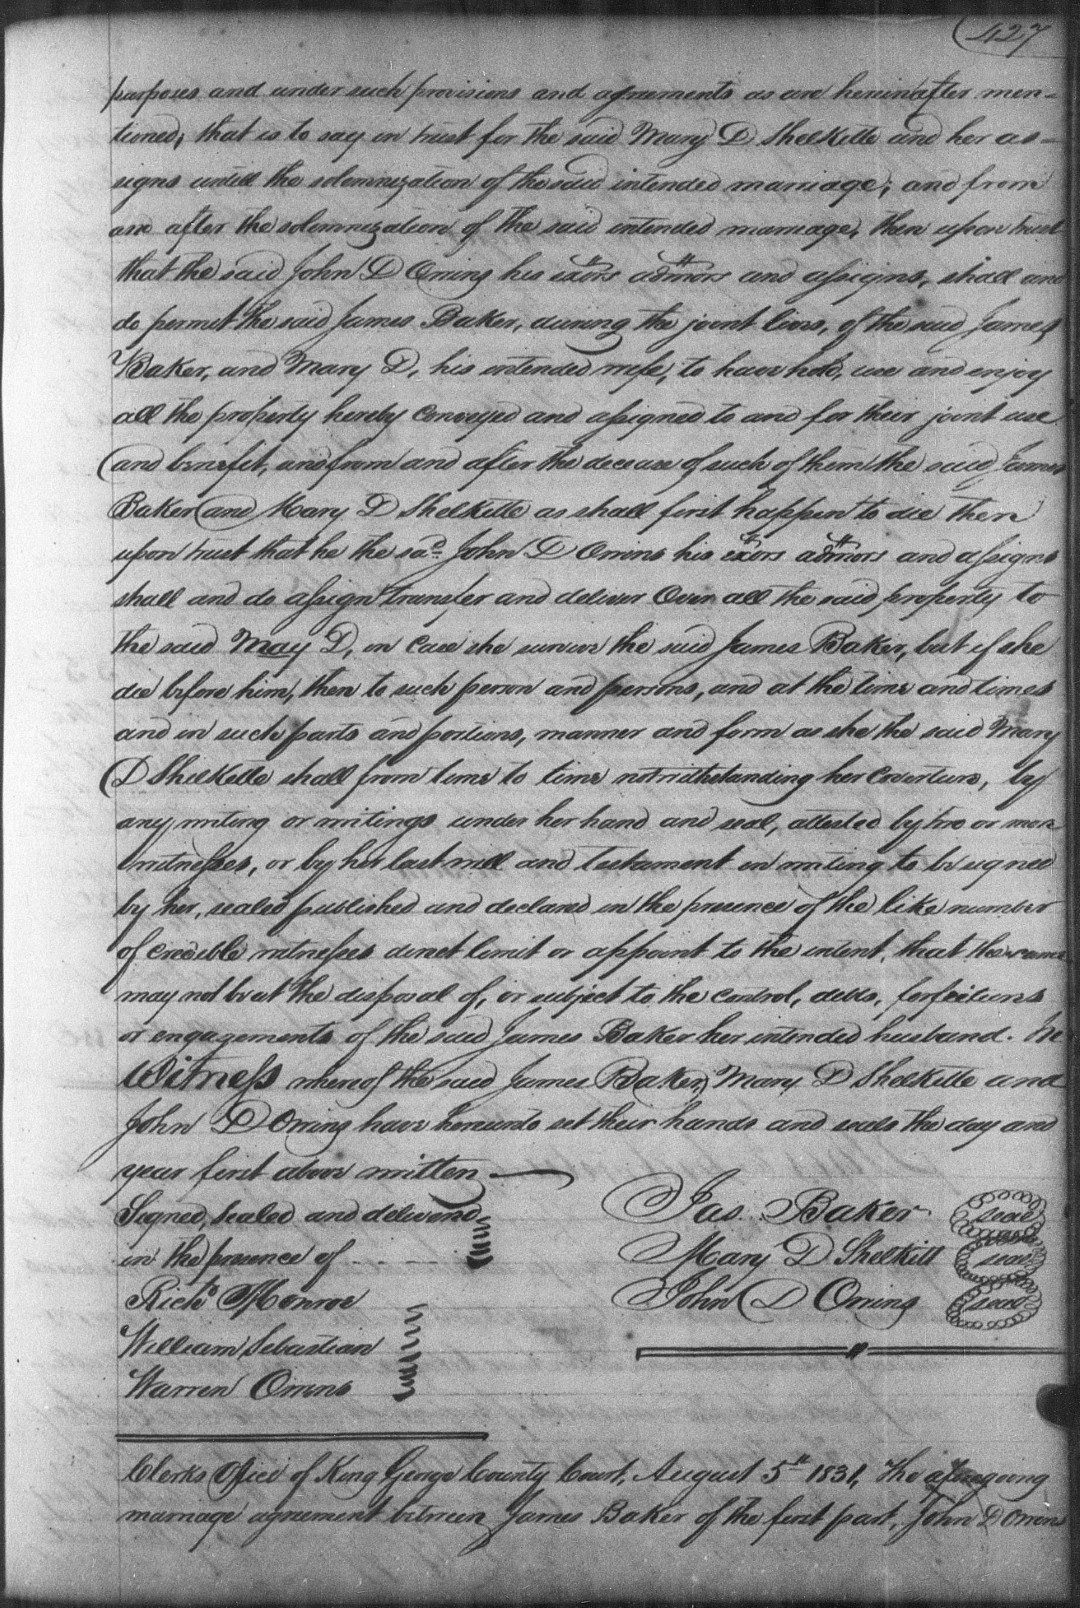 427
purposes and under such provisions and agreements as are hereinafter men=
tioned; that is to say in trust for the said Mary D Shelkette and her as=
signs untill the solemnization of the said intended marriage; and from
and after the solemnization of the said intended marriage, then upon trust
that the said John D Orring his exors admors and assigns, shall and
do permit the said James Baker, during the joint lives, of the said James
Baker, and Mary D, his intended wife, to have hold, use and enjoy
all the property hereby conveyed and assigned to and for their joint use
and benefit, and from and after the decease of such of them the said James
Baker and Mary D Shelkette as shall first happen to die then
upon trust that he the sad. John D Orrins his exors admors and assigns
shall and do assign transfer and deliver over all the said property to
the said May D, in case she survive the said James Baker, but if she
die before him, then to such person and persons, and at the time and times
and in such parts and portions, manner and form as she the said Mary
D Shelkette shall from time to time notwithstanding her coverture, by
any writing or writings under her hand and seal, attested by two or more
witnesses, or by her last will and testament in writing to be signed
by her, sealed published and declared in the presence of the like number
of credible witnesses direct limit or appoint to the intent, that the same
may not be at the disposal of, or subject to the control, debts, forfeitures
or engagements of the said James Baker her intended husband. In
Witness whereof the said James Baker, Mary D Shelkette and
John D Orring have hereunto set their hands and seals the day and
year first above written
Signed, sealed and delivered
in the presence of
Richd Monroe
William Sebastian
Warren Orrins
Jas. Baker seal
Mary D Shelkitt seal
John D Orring seal
Clerks Office of King George County Court, August 5th 1831, The aforegoing
marriage agreement between James Baker of the first part, John D Orrins